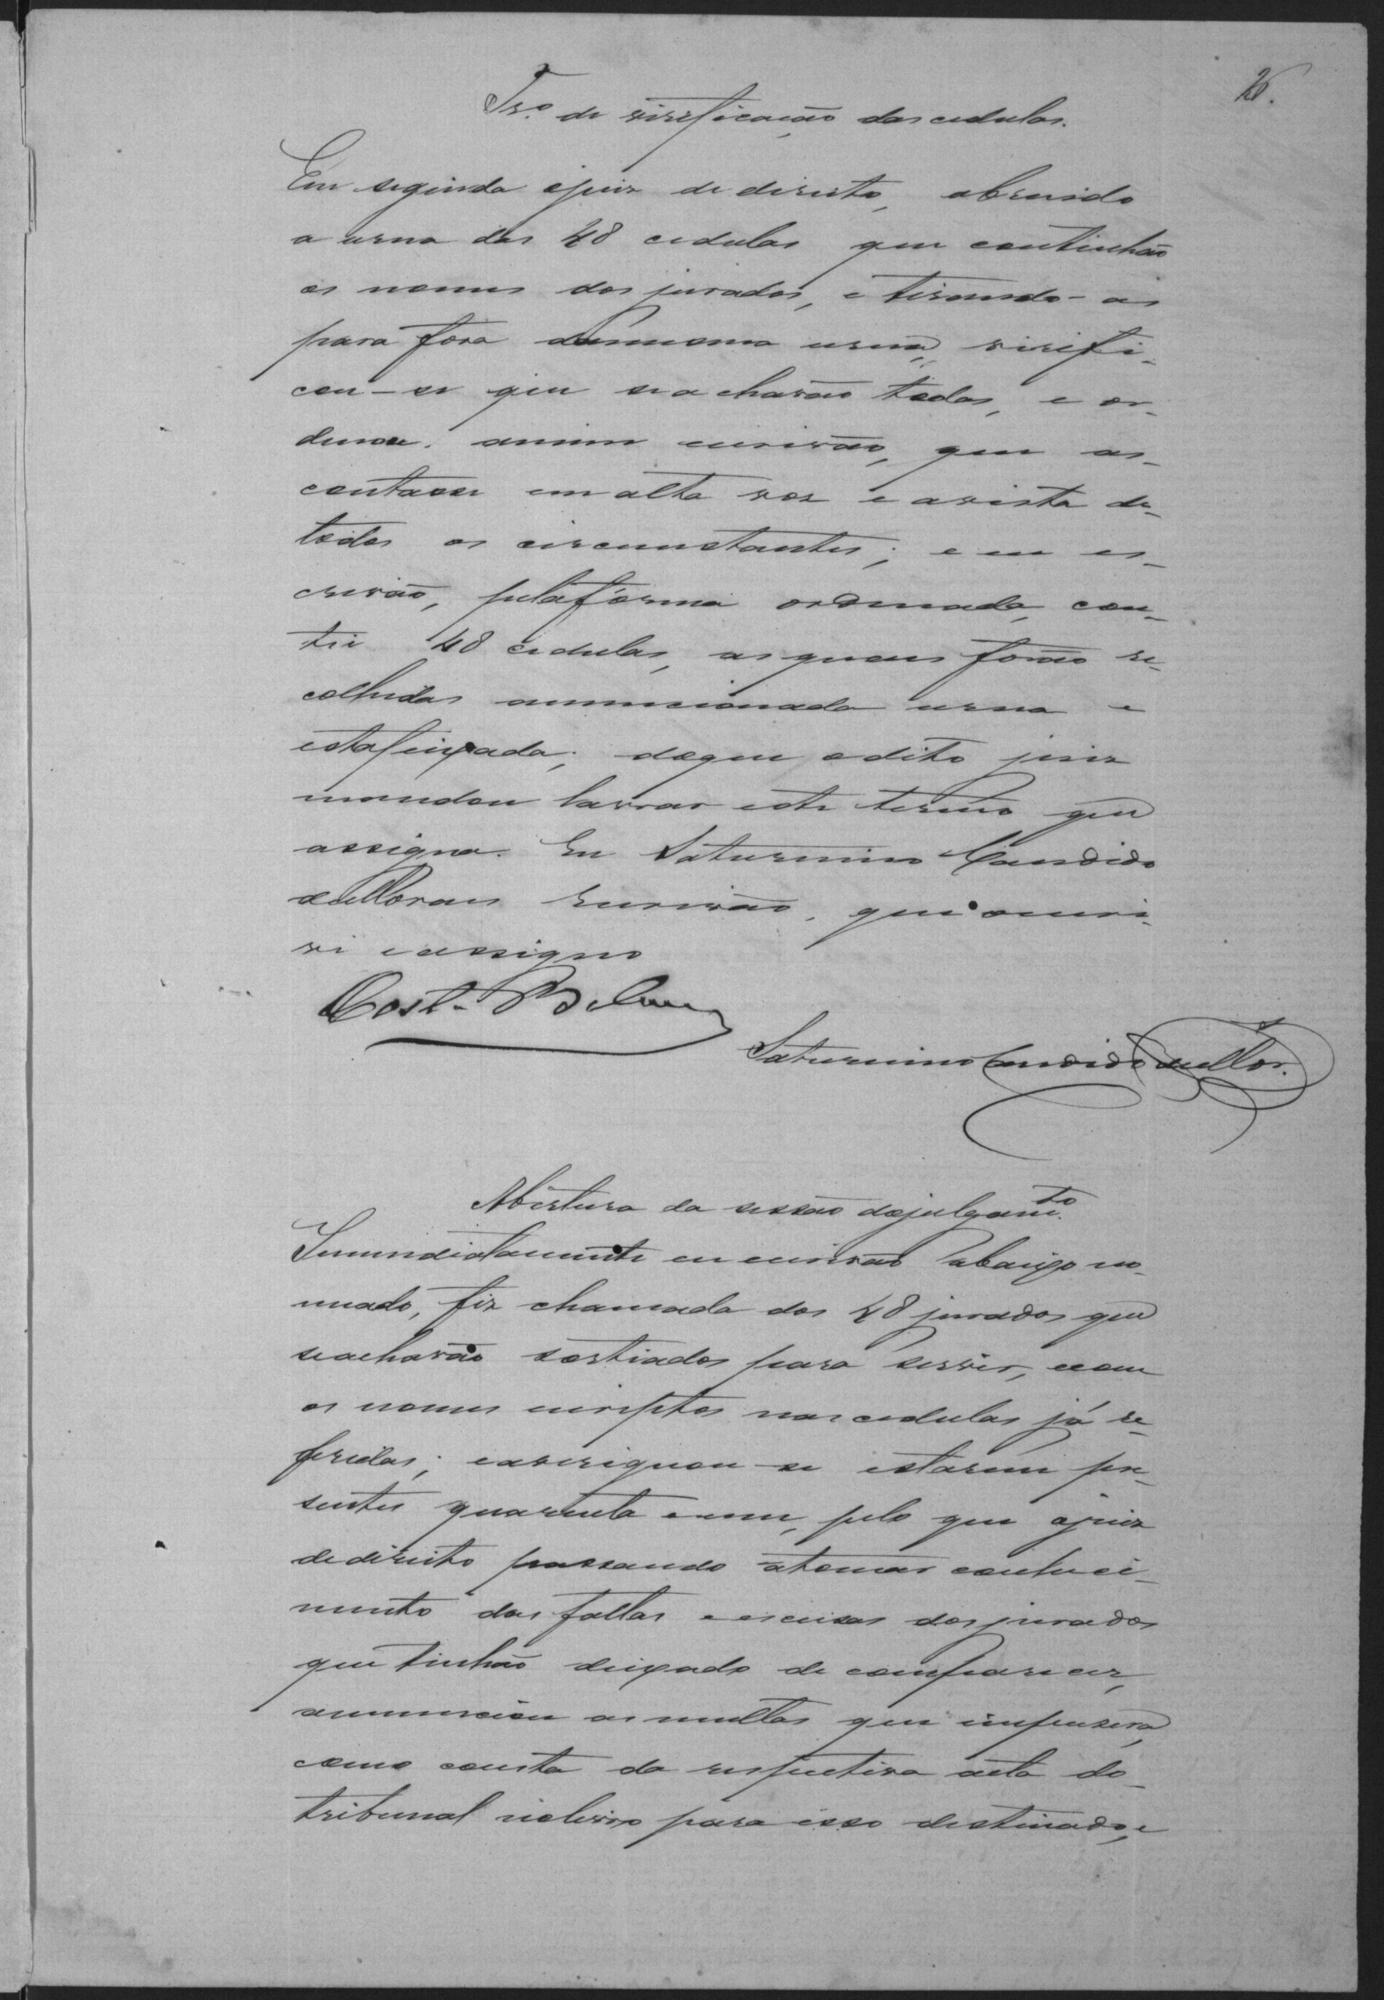 26.
Tr.º de virificação das cedulas.
Em seguida o juiz de direito, abrindo
a urna das 48 cedulas que continhão
os nomes dos jurados, e tirando-as
para fora da mesma urna, virifi-
cou-se que se achavão todas, e or-
denou a mim escrivão, que as
contasse em alta voz e a vista de
todos os circunstantes; e eu es-
crivão, pela fórma ordenada, con-
tei 48 cedulas, as quaes forão re-
colhidas a mencionada urna e
esta feixada; do que o dito juiz
mandou lavrar este termo que
assigna. Eu Saturnino Candido
de Moraes Escrivão, que o escri-
vi e assigno
Cost.
Saturnino Candido de Mor.
Abertura da sessão do julgam.to
Immediatamente eu escrivão abaixo no-
meado, fiz chamada dos 48 jurados que
se achavão sortiados para servir, e com
os nomes escriptos nas cedulas já re-
feridas; e averiguou-se estarem pre-
sentes quarenta e um, pelo que o juiz
de direito passando a tomar conheci-
mento das faltas e escusas dos jurados
que tinhão deixado de comparecer,
annunciou as multas que impusera,
como consta da respectiva acta do
tribunal no livro para isso destinado, e